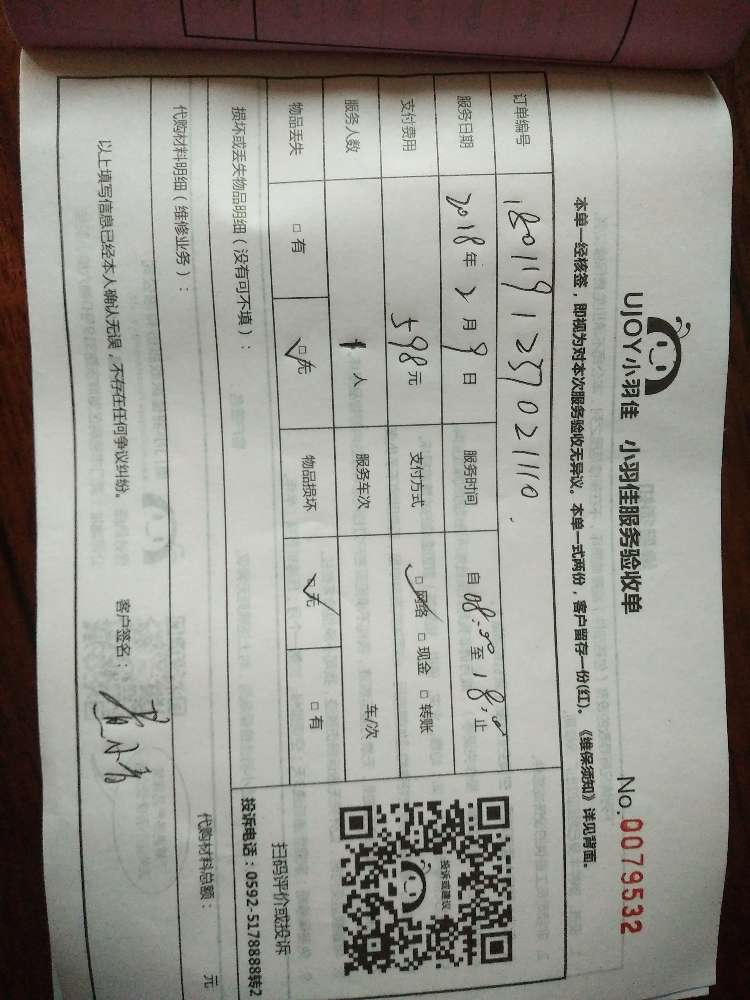 UJOY小羽佳 小羽佳服务验收单
No.0079532
本单一经核签，即视为对本次服务验收无异议。本单一式两份，客户留存一份(红)。《维保须知》详见背面。
订单编号 180119125702110
服务日期 2018年2月9日 服务时间 自08:00至18:00止
支付费用 598元 支付方式 □网络 □现金 □转账
服务人数 1人 服务车次 车/次
物品丢失 □有 □无 物品损坏 □无 □有
投诉或建议
扫码评价或投诉
投诉电话：0592-5178888转2
损坏或丢失物品明细（没有可不填）：
代购材料明细（维修业务）： 代购材料总额： 元
以上填写信息已经本人确认无误，不存在任何争议纠纷。 客户签名：